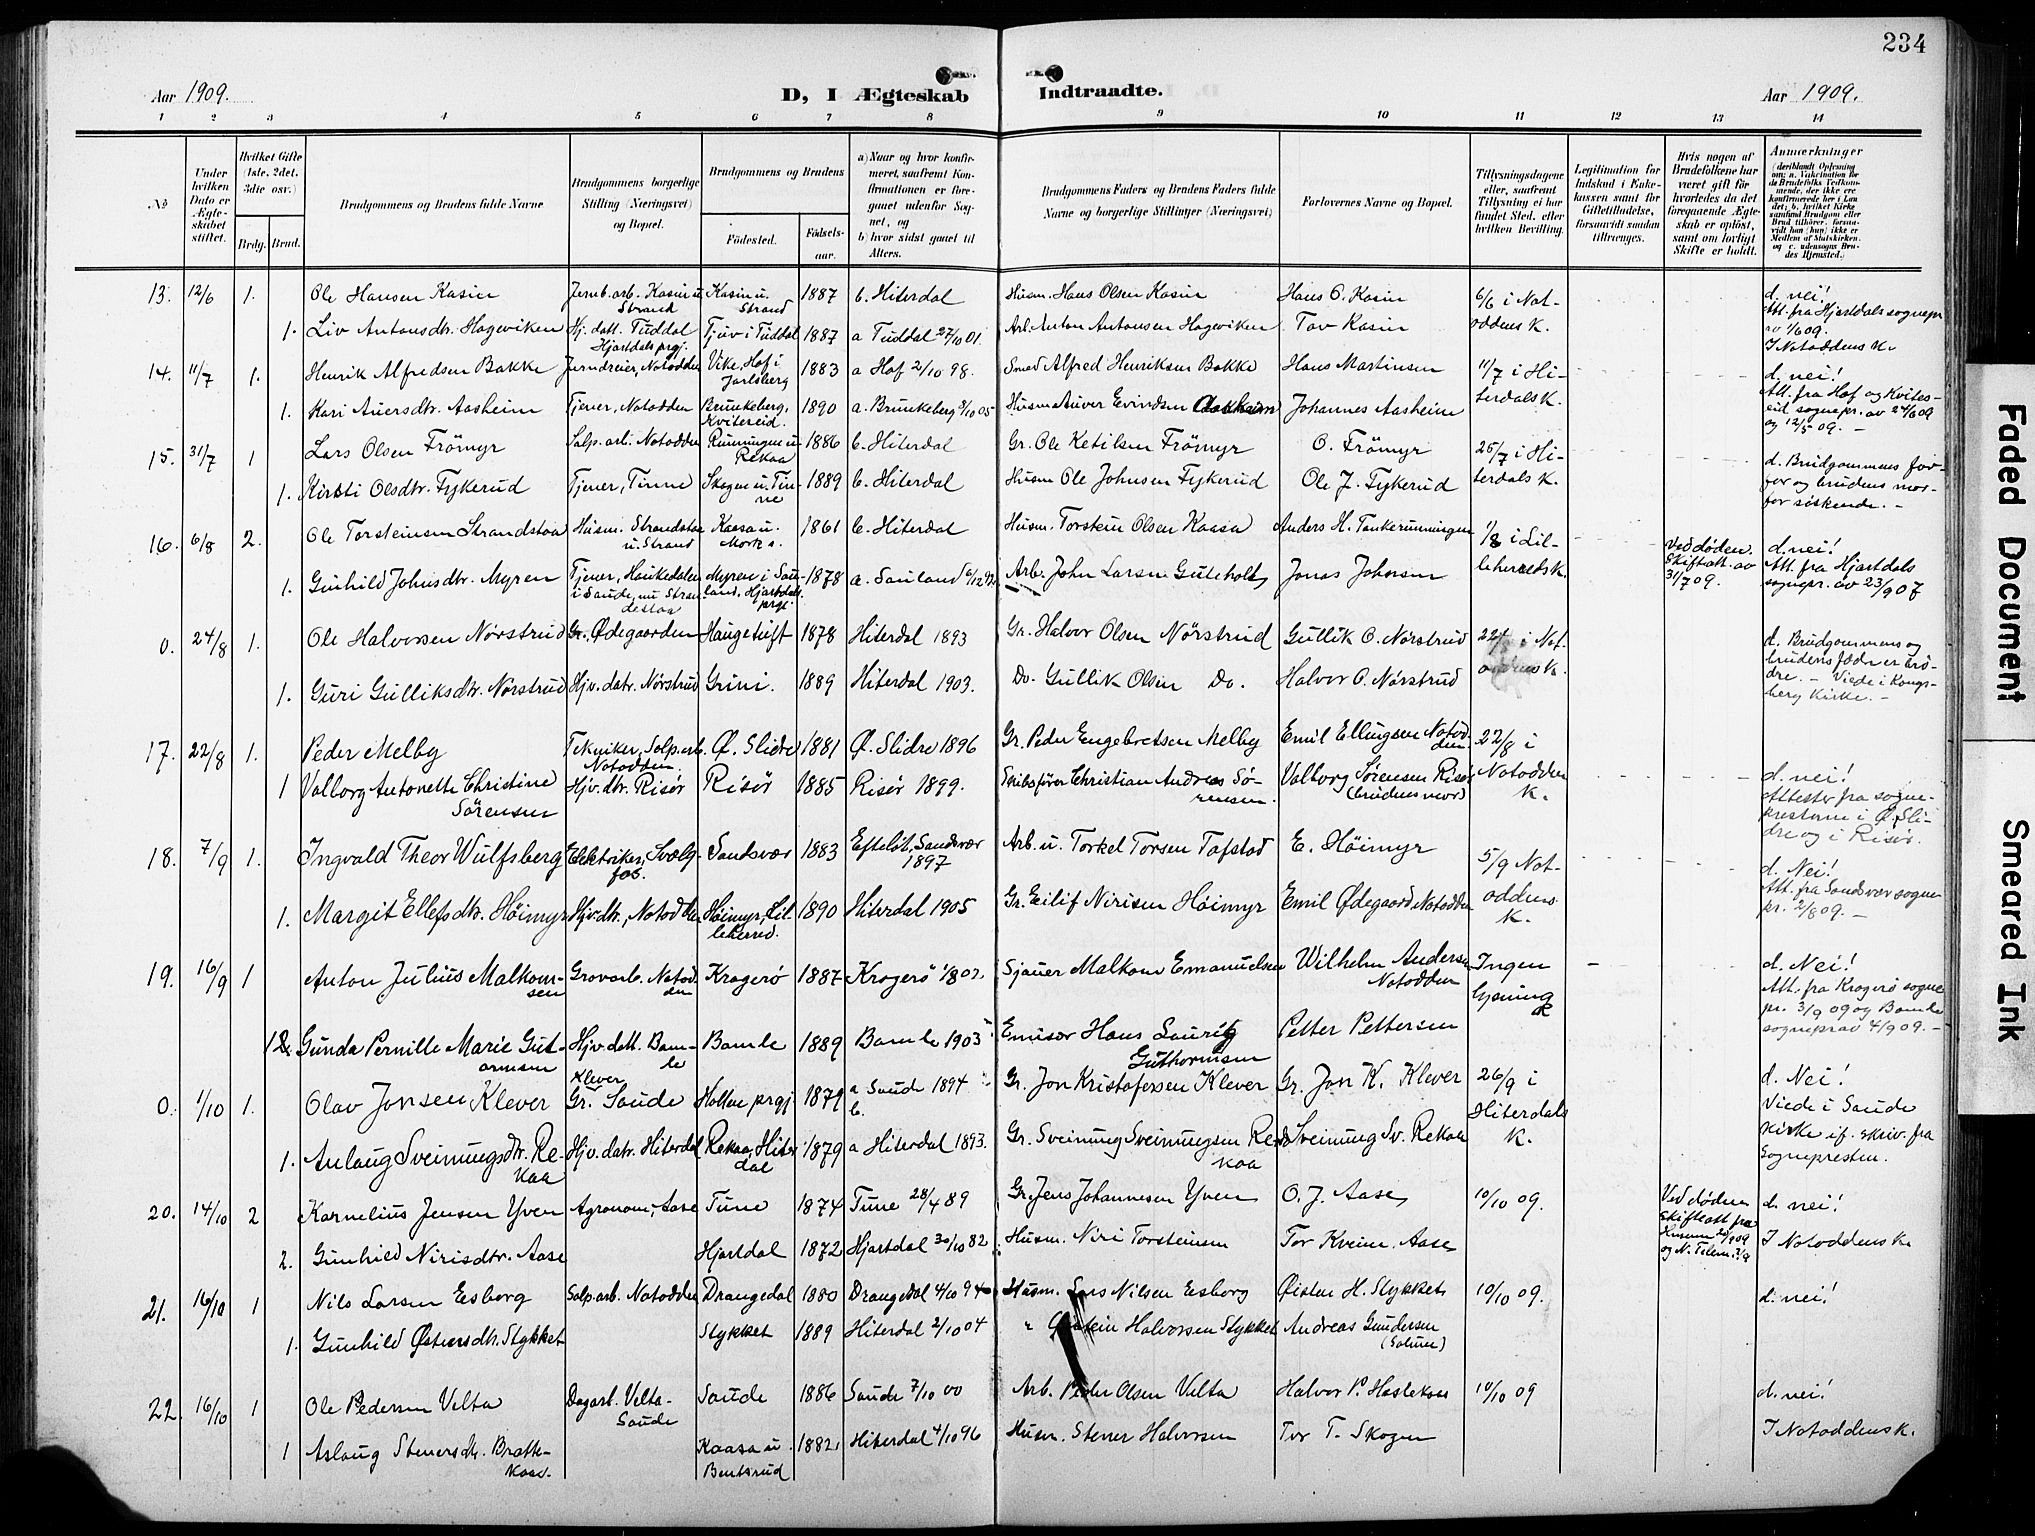 234
Aar 1909.
D, I Ægteskab Indtraadte.
Aar 1909.
1 2 3 4 5 6 7 8 9 10 11 12 13 14
No
Under hvilken Dato er Ægteskabet stiftet.
Hvilket Gifte (1ste, 2det, 3die osv.)
Brdg. Brud.
Brudgommens og Brudens fulde Navne
Brudgommens borgerlige Stilling (Næringsvei) og Bopæl.
Brudgommens og Brudens
Fødested.
Fødselsaar.
a) Naar og hvor konfirmeret, saafremt Konfirmationen er foregaaet udenfor Sognet, og
b) hvor sidst gaaet til Alters.
Brudgommens Faders og Brudens Faders fulde Navne og borgerlige Stillinger (Næringsvei)
Forlovernes Navne og Bopæl.
Tillysningsdagene eller, saafremt Tillysning ei har fundet Sted, efter hvilken Bevilling.
Legitimation for Indskud i Enkekassen samt for Giftetilladelse, forsaavidt saadan tiltrænges.
Hvis nogen af Brudefolkene har været gift før hvorledes da det foregaaende Ægteskab er opløst, samt om lovligt Skifte er holdt.
Anmærkninger
(deriblandt Oplysning om: a. Vakcination for de Brudefolks Vedkommende, der ikke ere konfirmerede her i Landet; b. hvilket Kirkesamfund Brudgom eller Brud tilhører, forsaavidt han (hun) ikke er Medlem af Statskirken, og c. udensogns Brudes Hjemsted.)
13. 12/6 1. Ole Hansen Kasin Jernb.arb. Kasin u. Strand Kasin u. Strand 1887 b. Hiterdal Husm. Hans Olsen Kasin Hans O. Kasin 6/6 i Notoddens K. d. nei!
1. Liv Antonsdtr. Hageviken Hj. datt. Tuddal Hjartdals prgj. Tjuv i Tuddal 1887 a Tuddal 27/10 01. Arb. Anton Antonsen Hageviken Tov Kasin Att. fra Hjartdals sognepr av 1/6 09. I Notoddens K.
14. 11/7 1. Henrik Alfredsen Bakke Jerndreier, Notodden Vike, Hof i Jarlsberg 1883 a Hof 2/10 98. Smed Alfred Henriksen Bakke Hans Martinsen 11/7 i Hiterdals K. d. nei!
1. Kari Auversdtr. Aasheim Tjener, Notodden Brunkeberg, Kviteseid. 1890 a. Brunkeberg 8/10 05 Husm. Auver Evindsen Aasheim Johannes Aasheim Att. fra Hof og Kviteseid sognepr. av 24/6 09 og 12/5 09. -
15. 31/7 1 Lars Olsen Frömyr Salp.arb. Notodden Runningen u. Rekaa 1886 b. Hiterdal Gr. Ole Ketilsen Frömyr O. Frömyr 25/7 i Hiterdals K. d. Brudgommens farfar og brudens morfar söskende. -
1. Kirsti Olsdtr. Fykerud Tjener, Tinne Skogen u. Tinne 1889 b. Hiterdal Husm Ole Johnsen Fykerud Ole J. Fykerud
16. 6/8 2. Ole Torsteinsen Strandstaa Husm. Strandstaa u. Strand Kaasa u. Mork s. 1861 b. Hiterdal Husm. Torstein Olsen Kaasa Anders H. Tankerunningen 1/8 i Lilleherreds K. Ved döden. Skifteatt. av 31/7 09. d. nei!
1. Gunhild Johnsdtr. Myren Tjener, Haukedalen i Saude, nu Strandestaa Myren i Sauland, Hjartdals prgj. 1878 a. Sauland Arb. John Larsen Guteholt Jonas Johnsen Att. fra Hjartdals sognepr. av 23/9 07
0. 24/8 1. Ole Halvorsen Nörstrud Gr. Ødegaarden Haugetuft 1878 Hiterdal 1893 Gr. Halvor Olsen Nörstrud Gullik O. Nörstrud 22/8 i Notoddens K. d. Brudgommens og brudens fædre er brödre. - Viede i Kongsberg Kirke. -
1. Guri Gulliksdtr. Nörstrud Hjv. datr. Nörstrud Grini. 1889 Hiterdal 1903. Do. Gullik Olsen Do. Halvor O. Nörstrud
17. 22/8 1. Peder Melby Tekniker, Salp.arb. Notodden Ø. Slidre 1881 Ø. Slidre 1896 Gr. Peder Engebretsen Melby Emil Ellingsen Notodden 22/8 i Notodden K.
1 Valborg Antonette Christine Sörensen Hjv. dtr. Risör Risör 1885 Risör 1899. Skibsfører Christian Andreas Sörensen. Valborg Sörensen Risör (brudens mor) d. nei! Attester fra sogneprestene i Ø. Slidre og i Risör.
18. 7/9 1. Ingvald Theor Wulfsberg Elektriker, Svælgfos. Sandsvær 1883 Efteløt, Sandsvær 1897 Arb. u. Torkel Torsen Tafstad E. Höimyr 5/9 Notoddens K. d. Nei!
1. Margit Ellefsdtr. Höimyr Hjv. dtr., Notodden Höimyr, Lilleherred. 1890 Hiterdal 1905 Gr. Eilif Nirisen Höimyr Emil Ødegaard Notodden Att. fra Sandsvær sognepr. 2/8 09. -
19. 16/9 1 Anton Julius Malkomsen Grovarb. Notodden Kragerö 1887 Kragerö 1/8 02. Sjauer Malkom Emanuelsen Wilhelm Andersen Notodden Ingen lysning d. Nei! Att. fra Kragerö sognepr. 3/9 09 og Bamle sognepr av 4/9 09. -
1. Gunda Pernille Marie Gutormsen Hjv. datt. Bamle Bamle 1889 Bamle 1903 Emisær Hans Lauritz Guthormsen Petter Pettersen
0. 1/10 1. Olav Jonsen Klever Klever Gr. Saude Hollen prgj. 1879 a Saude 1894 b. Gr. Jon Kristofersen Klever Gr. Jon K. Klever 26/9 i Hiterdals K. d. Nei! Viede i Saude Kirke if. skriv. fra Sognepresten.
1. Anlaug Sveinungsdtr. Rekaa Hjv. datr. Hiterdal Rekaa, Hiterdal 1879 a Hiterdal 1893. Gr. Sveinung Sveinungsen Rekaa Sveinung Sv. Rekaa
20. 14/10 2 Kornelius Jensen Yven Agronom, Aase Tune 1874 Tune 28/4 89 Gr. Jens Johannesen Yven O. J. Aase 10/10 09. Ved döden Skifteatt fra d. nei!
2. Gunhild Nirisdtr. Aase Hjartdal 1872 Hjartdal 30/10 82 Husm. Niri Torsteinsen Tor Kveim. Aase I Notoddens K.
21. 16/10 1 Nils Larsen Eesborg Salp.arb. Notodden Drangedal 1880 Drangedal 4/10 94 Husm. Lars Nilsen Eesborg Øisten H. Stykket 10/10 09. d. nei!
1. Gunhild Östensdtr. Stykket Stykket 1889 Hiterdal 2/10 04 " Østein Halvorsen Stykket Andreas Gundersen
22. 16/10 1 Ole Pedersen Velta Dagarb. Velta-Saude Saude 1886 Saude 7/10 00 Arb. Peder Olsen Velta Halvor P. Haslekaas 10/10 09 d. nei!
1 Aslaug Stenersdtr. Brattekaas. Kaasa u. Bentsrud 1882 Hiterdal 4/10 96 Husm. Stener Halvorsen Tor T. Skogen I Notoddens K.
Faded Document
Smeared Ink